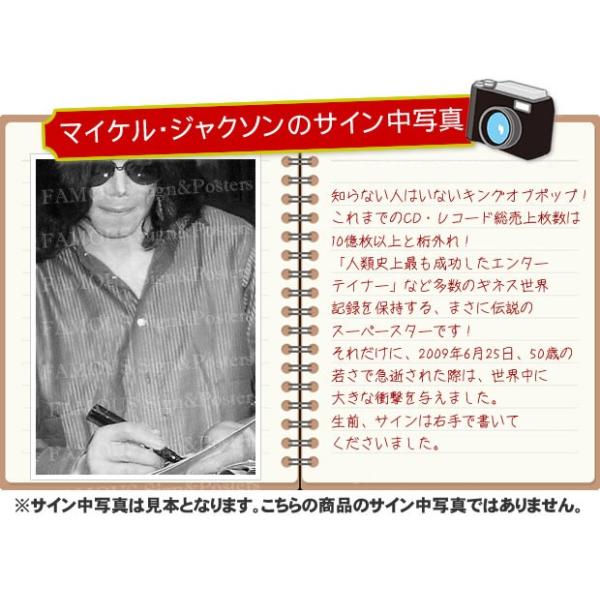 マイケル・ジャクソンのサイン中写真
FAMOUS Sign&Posters
FAMOUS Sign&Posters
FAMOUS Sign&Posters
FAMOUS Sign&Posters
FAMOUS Sign&Posters
FAMOUS Sign&Posters
知らない人はいないキングオブポップ!
これまでのCD・レコード総売上枚数は
10億枚以上と桁外れ!
「人類史上最も成功したエンター
テイナー」など多数のギネス世界
記録を保持する、まさに伝説の
スーパースターです!
それだけに、2009年6月25日、50歳の
若さで急逝された際は、世界中に
大きな衝撃を与えました。
生前、サインは右手で書いて
くださいました。
※サイン中写真は見本となります。こちらの商品のサイン中写真ではありません。